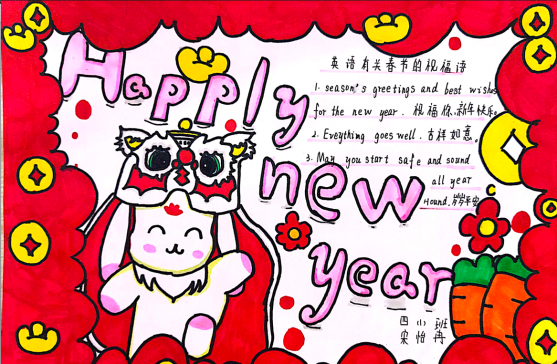 Happly
new
year
英语有关春节的祝福语
1. season's greetings and best wishes
for the new year. 祝福你,新年快乐。
2. Eveything goes well. 吉祥如意。
3. May you start safe and sound
all year
Hound. 岁岁平安
四小班
宋怡冉